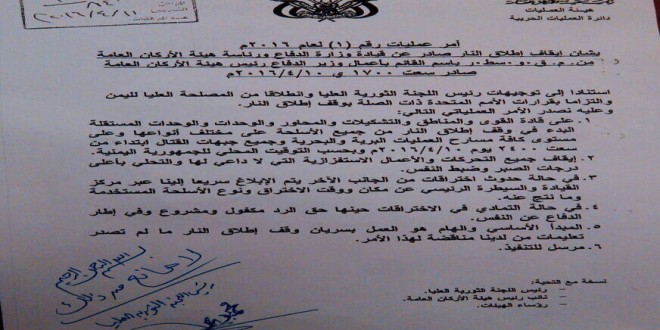 هيئة العمليات
دائرة العمليات الحربية
٢٠١٦/٤/١٠
أمر عمليات رقم (١) لعام ٢٠١٦م
بشان إيقاف إطلاق النار صادر عن قيادة وزارة الدفاع ورئاسة هيئة الأركان العامة
باسم القائم بأعمال وزير الدفاع رئيس هيئة الأركان العامة
صادر سعت ١٧٠٠ ي ٢٠١٦/٤/١٠م
استنادا إلى توجيهات رئيس اللجنة الثورية العليا وانطلاقا من المصلحة العليا لليمن
والتزاما بقرارات الأمم المتحدة ذات الصلة بوقف إطلاق النار.
وعليه نصدر الأمر العملياتي التالي:
١. على قادة القوى والمناطق والتشكيلات والمحاور والوحدات والوحدات المستقلة
البدء في وقف إطلاق النار من جميع الأسلحة على مختلف أنواعها وعلى
مستوى كافة مسارح العمليات البرية والبحرية وجميع جبهات القتال إبتداء من
سعت ٢٤٠٠ يوم ٢٠١٦/٤/١٠م وبحسب التوقيت المحلي للجمهورية اليمنية.
٢. إيقاف جميع التحركات والأعمال الاستفزازية التي لا داعي لها والتحلي بأعلى
درجات الصبر وضبط النفس.
٣. في حالة حدوث اختراقات من الجانب الآخر يتم الإبلاغ سريعا إلينا عبر مركز
القيادة والسيطرة الرئيسي عن مكان ووقت الاختراق ونوع الأسلحة المستخدمة
وما نتج عنه.
٤. في حالة التمادي في الاختراقات حينها حق الرد مكفول ومشروع وفي إطار
الدفاع عن النفس.
٥. المبدأ الأساسي والهام هو العمل بسريان وقف إطلاق النار ما لم تصدر
تعليمات من لدينا مناقضة لهذا الأمر.
٦. مرسل للتنفيذ.
بسم الله الرحمن الرحيم
لا مانع من ذلك
رئيس اللجنة الثورية العليا
نسخة مع التحية:
– رئيس اللجنة الثورية العليا.
– نائب رئيس هيئة الأركان العامة.
– رؤساء الهيئات.